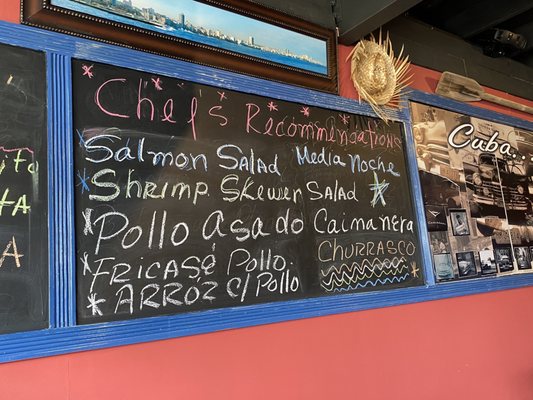 Chef's Recommendations
Salmon Salad Media Noche
Shrimp Skewer Salad
Pollo Asado Caimanera
Churrasco
Fricasé Pollo.
Arróz c/ Pollo
Cuba...